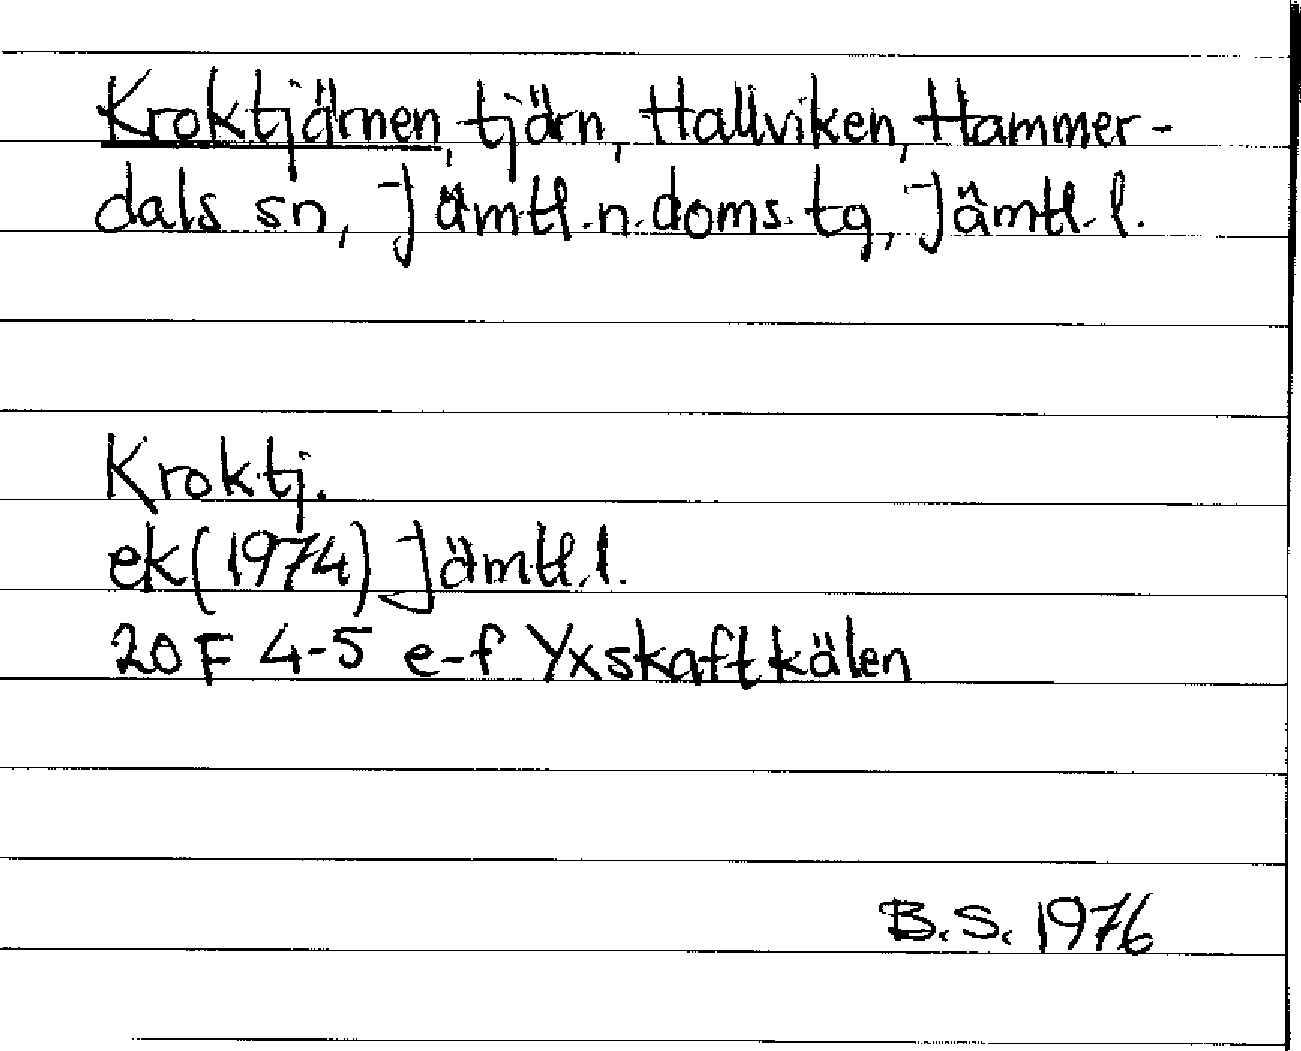 Kroktjärnen, tjärn, Hallviken, Hammer-
dals sn, Jämtl.n.doms.tg, Jämtl.l.
Kroktj.
ek(1974) Jämtl.l.
20F 4-5 e-f Yxskaftkälen
B.S. 1976